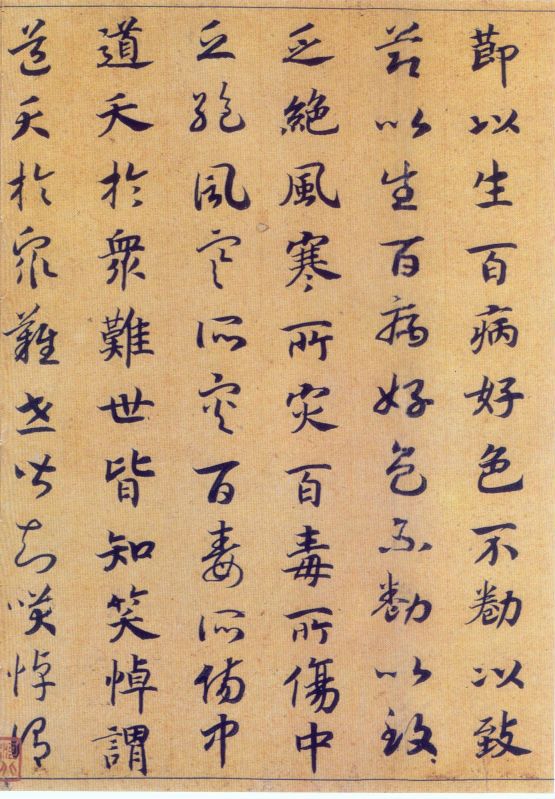 節以生百病好色不勌以致
節以生百病好色不勌以致
乏絶風寒所灾百毒所傷中
乏絶風寒所灾百毒所傷中
道夭於衆難世皆知笑悼謂
道夭於衆難世皆知笑悼謂